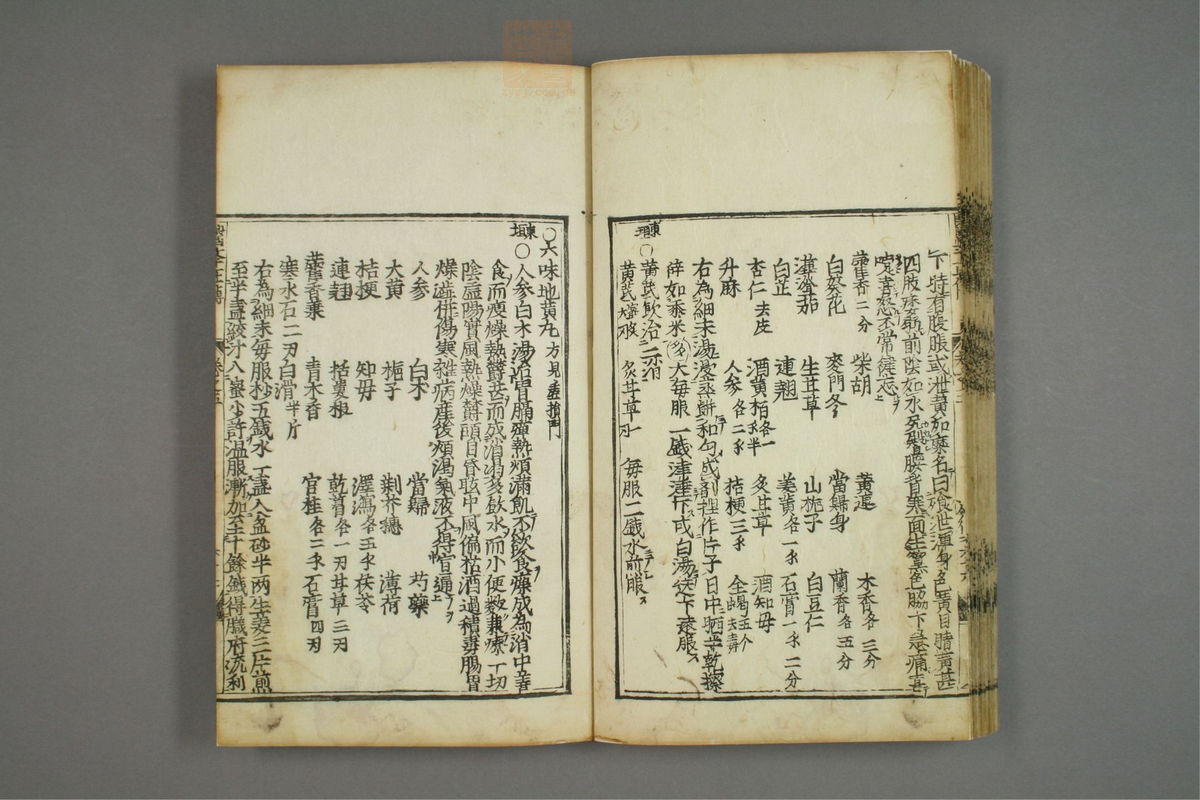 下時有腹脹或泄黄如藥名曰食泄渾身色黄目睛黄甚
四肢痿軟前陰如水尻臀腰背寒面生黧色脇下急痛善
嚏喜怒不常健忘
藿香二分 柴胡 黄連 木香各三分
白葵花 麥門冬 當歸身 蘭香各五分
蓽澄茄 生甘草 山梔子 白豆仁
白芷 連翹 姜黄各一水 石膏一水二分
杏仁去皮 酒黄栢各一水半 炙甘草 酒知母
升麻 人参各二水 桔梗三水 全蝎五个去毒
右為細末湯浸蒸餅和匀成剤捏作片子日中晒半乾擦
碎如黍米大每服一錢津津下或白湯送下遠服
東垣
○黄芪飲治三消
黄芪 炙甘草 每服二錢水煎服
○六味地黄丸方見
東垣
○人参白朮湯治胃膈癉熱煩滿飢不飲食癉成為消中善
食而瘦燥熱鬱甚而成消渇多飲水而小便数兼療一切
陰虚陽實風熱燥鬱頭目昏眩中風偏枯酒過積毒腸胃
燥澁併傷寒雜病産後煩渇氣液不得宣通
人参 白朮 當歸 芍藥
大黄 梔子 荆芥穗 薄荷
桔梗 知母 澤瀉各五水 茯苓
連翹 栝蔞根 乾葛各一刃 甘草三刃
藿香葉 青木香 官桂各二水 石膏四刃
寒水石二刃 白滑半斤
右為細末每服抄五錢水一盞入盆硝半兩生姜三片煎
至半盞絞汁入蜜少許温服漸加至十餘錢得臓府流利